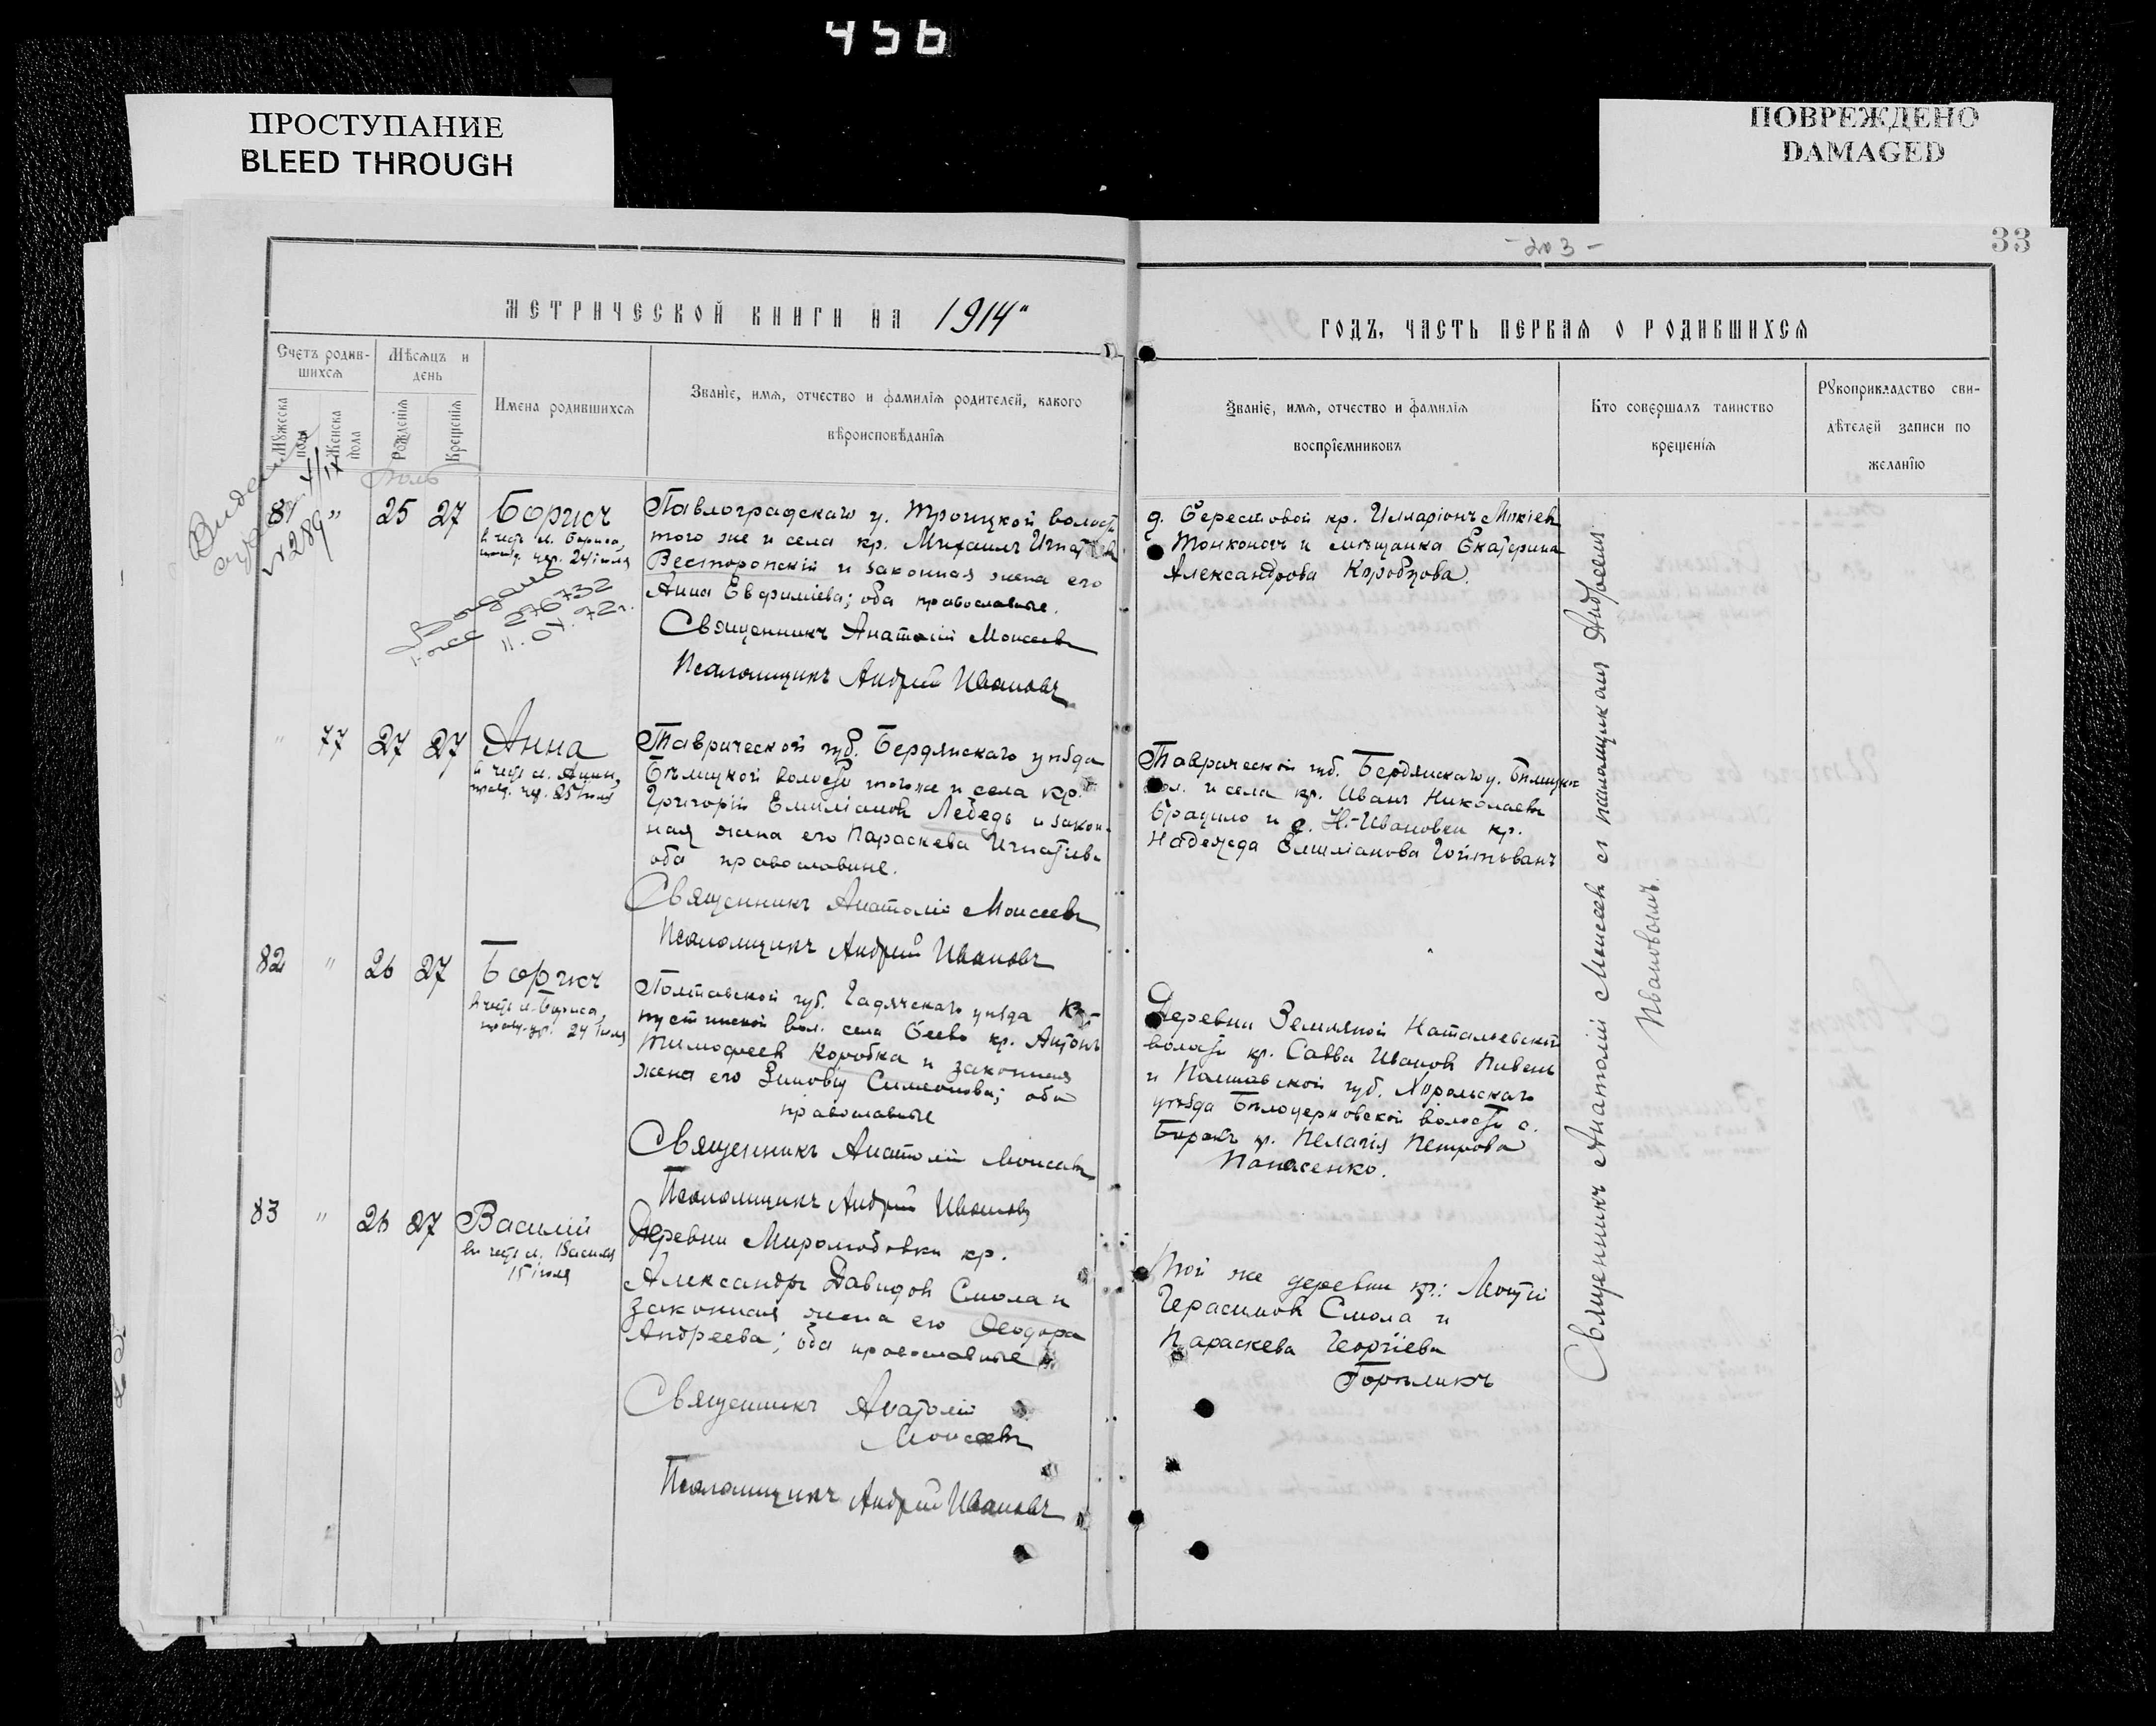 456
ПРОСТУПАНИЕ
BLEED THROUGH
ПОВРЕЖДЕНО
DAMAGED
- 203 -
33
МЕТРИЧЕСКОЙ КНИГИ НА 1914
ГОДЪ, ЧАСТЬ ПЕРВАЯ О РОДИВШИХСЯ
Счетъ родив-
шихся
Мужеска
пола
Женска
пола
Мѣсяцъ и
день
Рожденія
Крещенія
Имена родившихся
Званіе, имя, отчество и фамилія родителей, какого
вѣроисповѣданія
Званіе, имя, отчество и фамилія
воспріемниковъ
Кто совершалъ таинство
крещенія
Рукоприкладство сви-
дѣтелей записи по
желанію
№289
Іюль
81 " 25 27 Борисъ
въ честь м. Бориса,
24 іюля
Павлоградскаго у. Троицкой волости
того же и села кр. Михаилъ
Весторопскій и законная жена его
Анна Евфиміева; оба православные.
Священникъ Анатолій Моисеевъ
Псаломщикъ Андрей Ивановъ
д. Берестовой кр. Илларіонъ Мокіевъ
Тонконогъ и мѣщанка Екатерина
Александрова Коробцова.
276732
11. 72г.
" 77 27 27 Анна
въ честь м. Анны,
25 іюля
Таврической губ. Бердянскаго уѣзда
волости того же и села кр.
Григорій Емиліановъ Лебедь и закон-
ная жена его Параскева Игнатіева
оба православные.
Священникъ Анатолій Моисеевъ
Псаломщикъ Андрей Ивановъ
Таврической губ. Бердянскаго у.
вол. и села кр. Иванъ Николаевъ
Брацило и с. Н.-Ивановки кр.
Надежда Емиліанова
82 " 26 27 Борисъ
въ честь м. Бориса,
24 іюля
Полтавской губ. Гадячскаго уѣзда
вол. села Беево кр. Антонъ
Тимофеевъ Коробка и законная
жена его Зиновія Симеонова; оба
православные
Священникъ Анатолій Моисеевъ
Псаломщикъ Андрей Ивановъ
Деревни Земляной Натальевской
волости кр. Савва Ивановъ Пивень
и Полтавской губ. Хорольскаго
уѣзда Бѣлоцерковской волости с.
кр. Пелагія Петрова
Панасенко.
83 " 26 27 Василій
въ честь м. Василія
15 іюля
Деревни Миролюбовки кр.
Александръ Давидовъ Смола и
законная жена его Ѳеодора
Андреева; оба православные
Священникъ Анатолій
Моисеевъ
Псаломщикъ Андрей Ивановъ
Той же деревни кр.:
Герасимовъ Смола и
Параскева Георгіева
Горѣликъ
Священникъ Анатолій Моисеевъ съ псаломщикомъ Андреемъ
Ивановымъ.